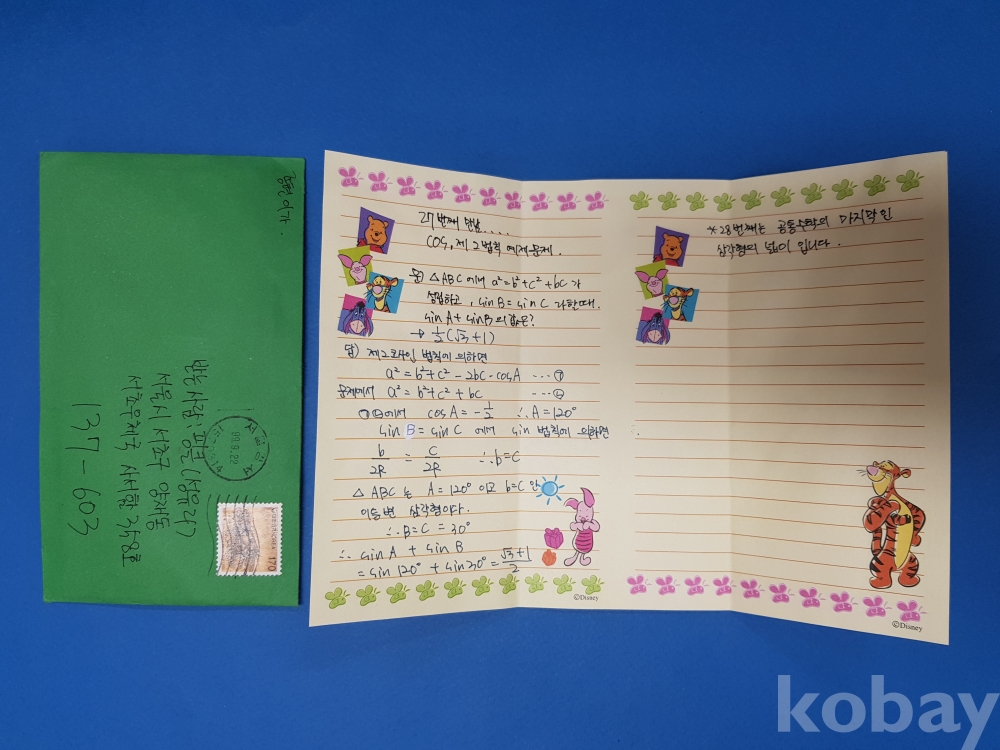 27번째 만남....
cos, 제2법칙 예제문제.
문) △ABC에서 a²=b²+c²+bc가
성립하고, sin B = sin C 라할때.
sin A + sin B의 값은?
→ ½(√3+1)
답) 제2코사인 법칙에 의하면
a² = b²+c² - 2bc·cosA ---①
문제에서 a² = b²+c²+bc ---②
①②에서 cosA = -½ ∴A=120°
sin B = sin C 에서 sin 법칙에 의하면
b/2R = c/2R ∴b=C
△ABC는 A=120° 이고 b=C 인
이등변 삼각형이다.
∴B=C = 30°
∴ sin A + sin B
= sin 120° + sin 30° = (√3+1)/2
©Disney
*28번째는 공통수학의 마지막인
삼각형의 넓이 입니다.
©Disney
받는사람:
서울시 서초구 양재동
서초우체국 사서함
137-603
99.9.22
170
kobay